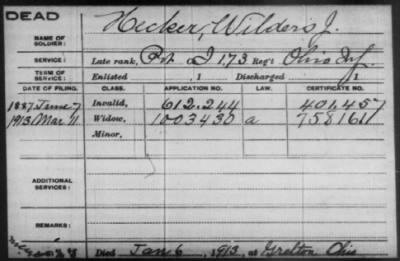 DEAD
Hecker, Wilders J.
NAME OF SOLDIER:
SERVICE: Late rank, Pvt Co I 173 Reg't Ohio Inf.
TERM OF SERVICE: Enlisted , 1 Discharged , 1
DATE OF FILING. CLASS. APPLICATION NO. LAW. CERTIFICATE NO.
1887 June 7 Invalid, 612.244 401.457
1913 Mar 11 Widow, 1003430 a 758161
Minor,
ADDITIONAL SERVICES:
REMARKS:
Died Jan 6, 1913, at Grelton Ohio